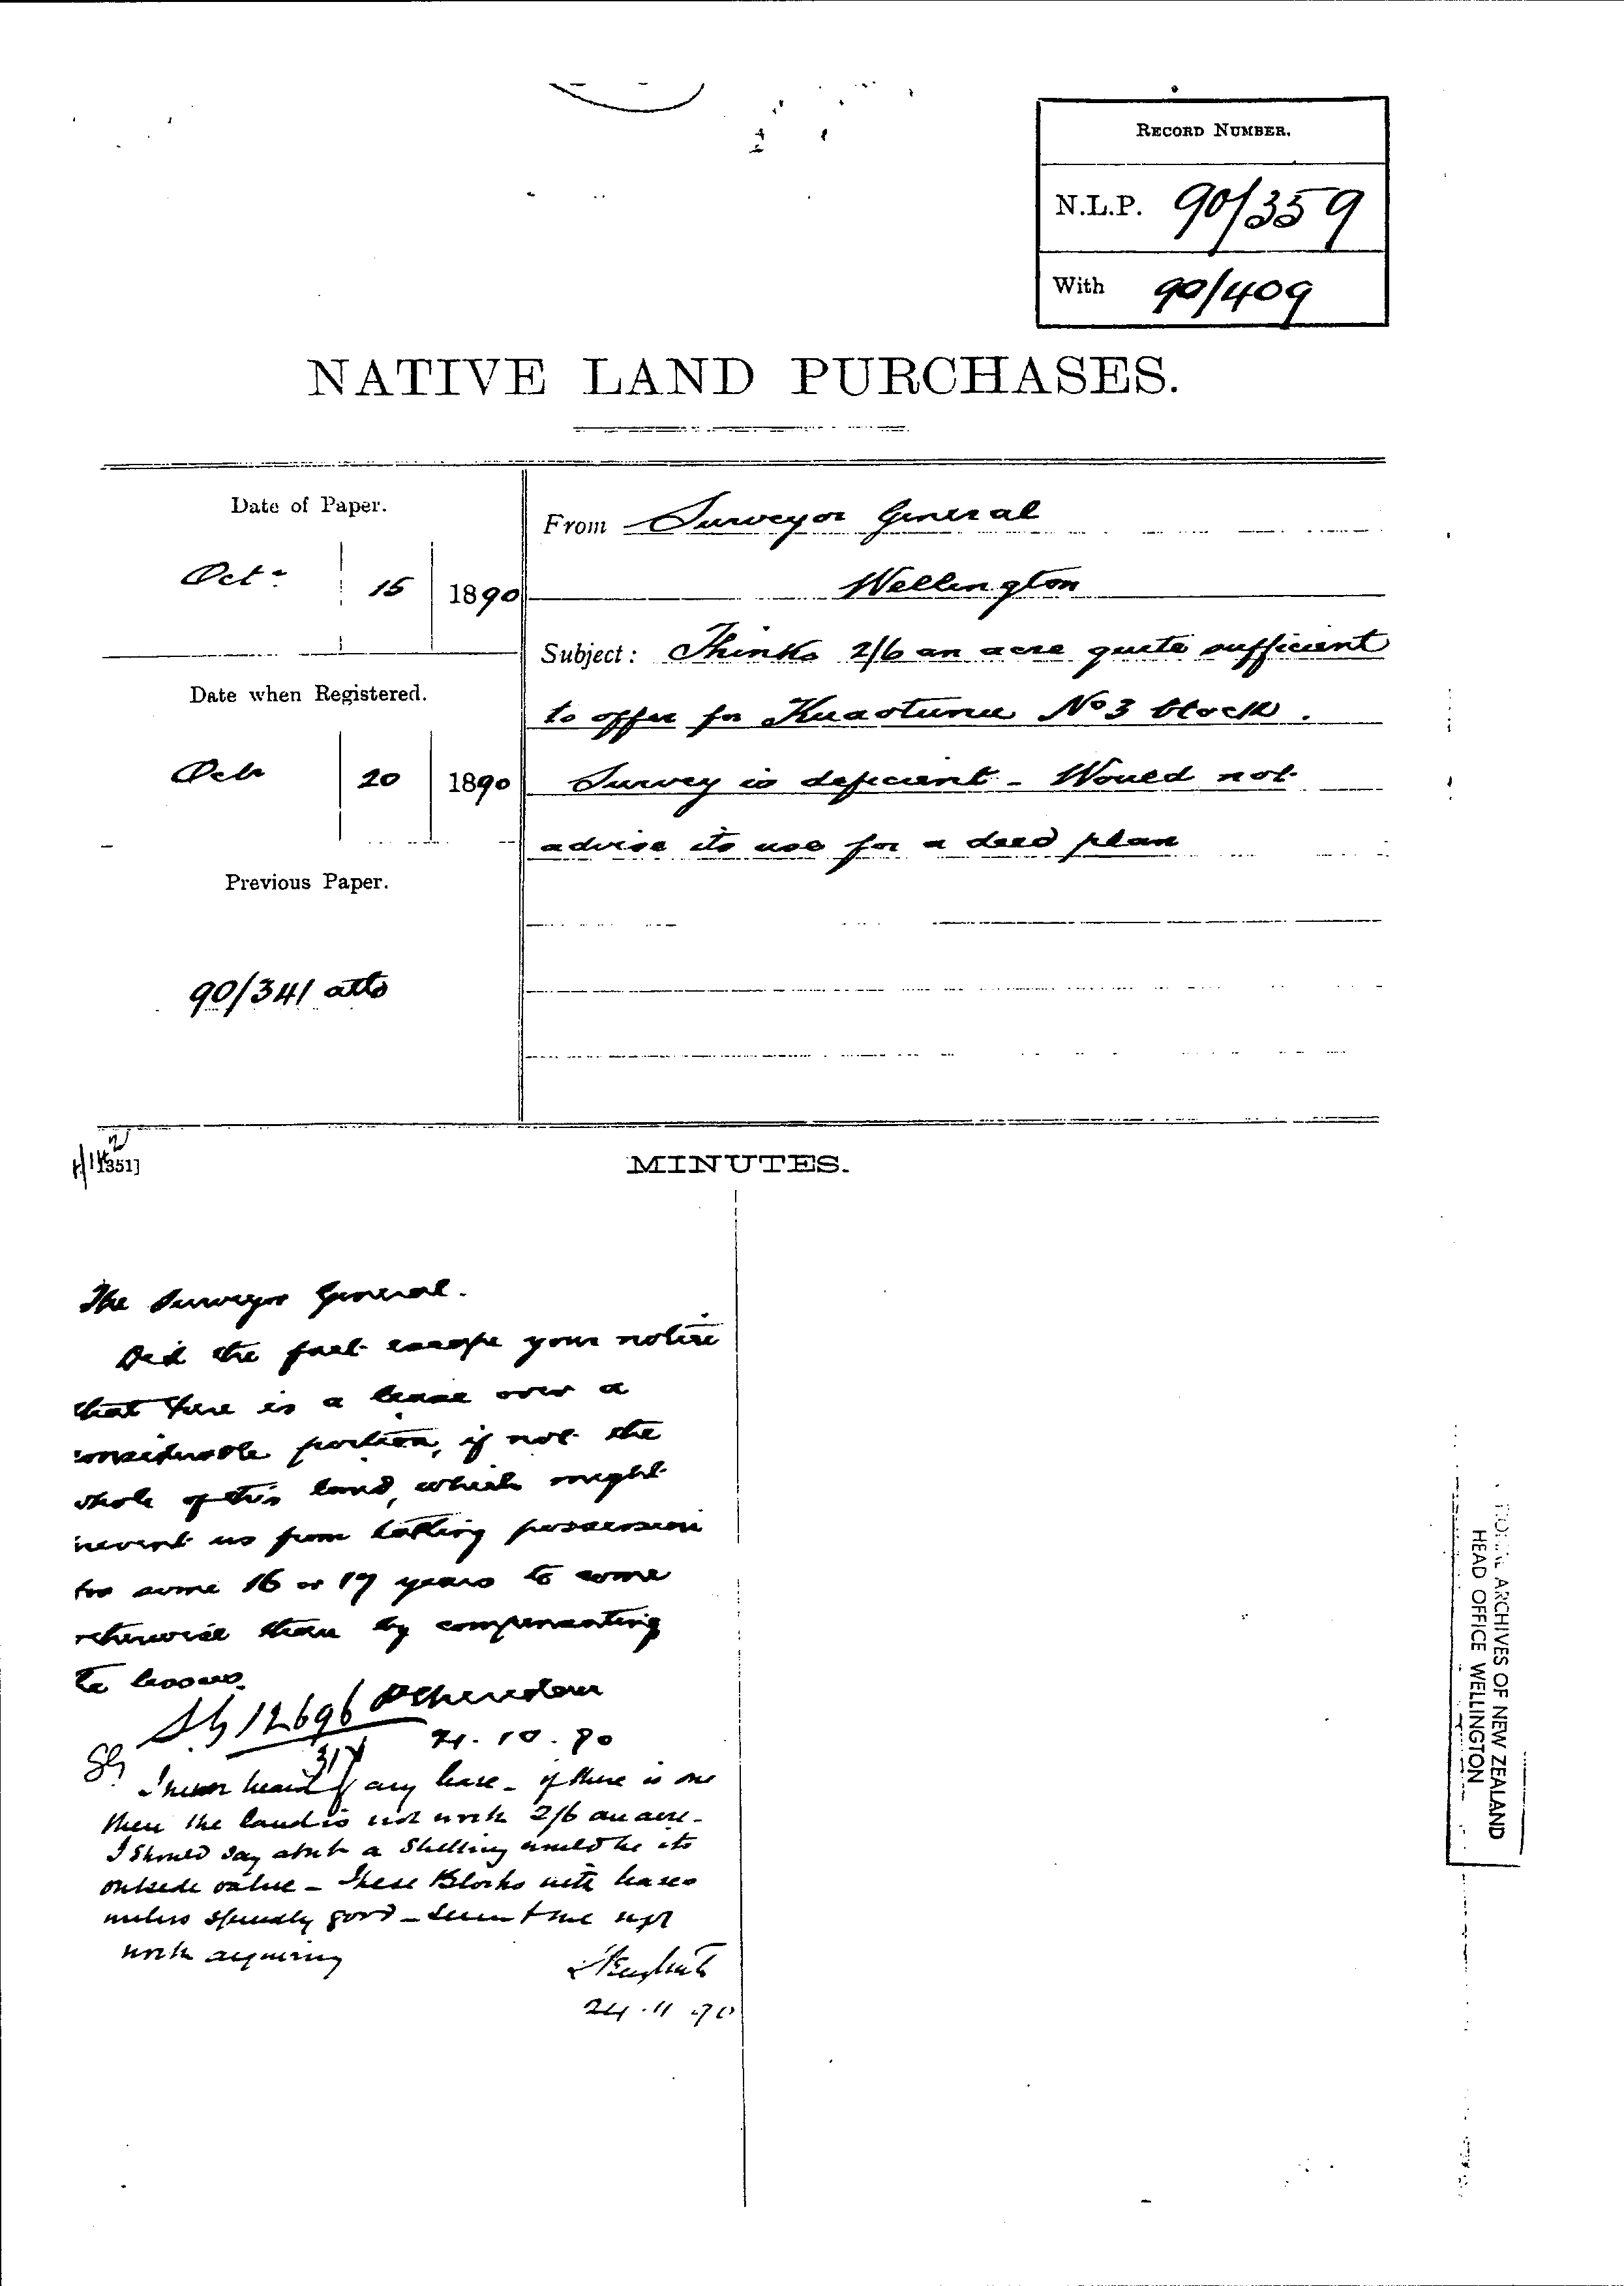 RECORD NUMBER.
N.L.P. 90/359
With 90/409
NATIVE LAND PURCHASES.
Date of Paper.
Oct. 15 1890
Date when Registered.
Oct 20 1890
Previous Paper.
90/341 atto
From Surveyor General
Wellington
Subject: Thinks 2/6 an acre quite sufficient
to offer for Kuaotunu No 3 block.
Survey is deficient - Would not
advise its use for a deed plan
1351]
MINUTES.
The Surveyor General.
Did the fact escape your notice
that there is a lease over a
considerable portion, if not the
whole of this land, which might
prevent us from taking possession
for some 16 or 17 years to come
otherwise than by compensating
the lessees.
SG 12696 PSheridan
21.10.90
SG
I never heard of any lease - if there is one
then the land is not worth 2/6 an acre -
I should say about a Shilling would be its
outside value - These Blocks with leases
unless specially good - seem to me not
worth acquiring
24.11.90
ARCHIVES OF NEW ZEALAND
HEAD OFFICE WELLINGTON